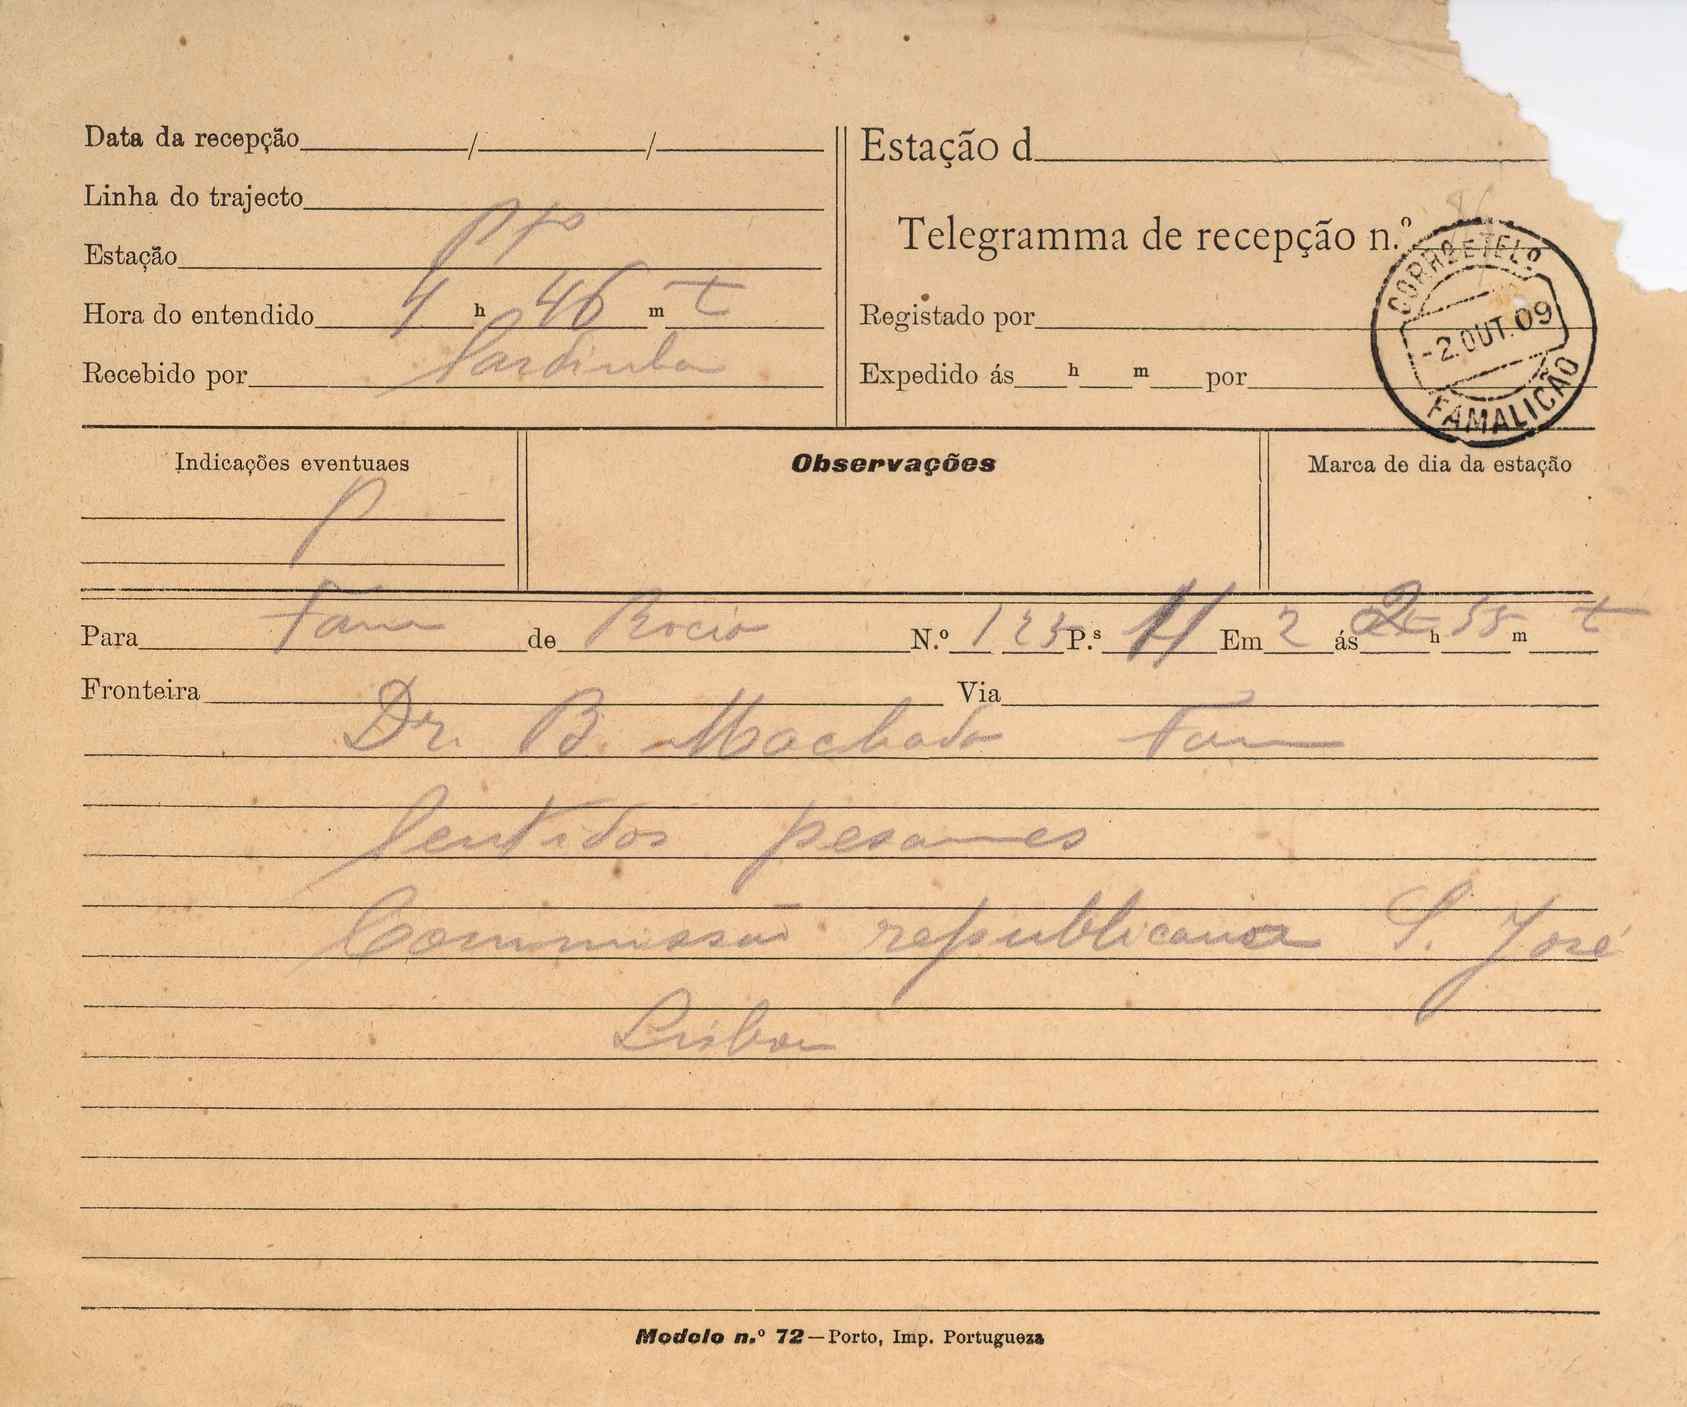 Data da recepção / /
Linha do trajecto
Estação pp
Hora do entendido 4 h 46 m t
Recebido por Sardinha
Estação d
Telegramma de recepção n.º
Registado por
Expedido ás h m por
CORRº E TELº
-2.OUT.09
FAMALICÃO
Indicações eventuaes
P
Observações
Marca de dia da estação
Para Fam de Rocio N.º 123 P.s 11 Em 2 ás 2 h 55 m t
Fronteira Via
Dr. B. Machado Fam
Sentidos pesames
Commissão republicana S. José
Lisboa
Modelo n.º 72—Porto, Imp. Portugueza